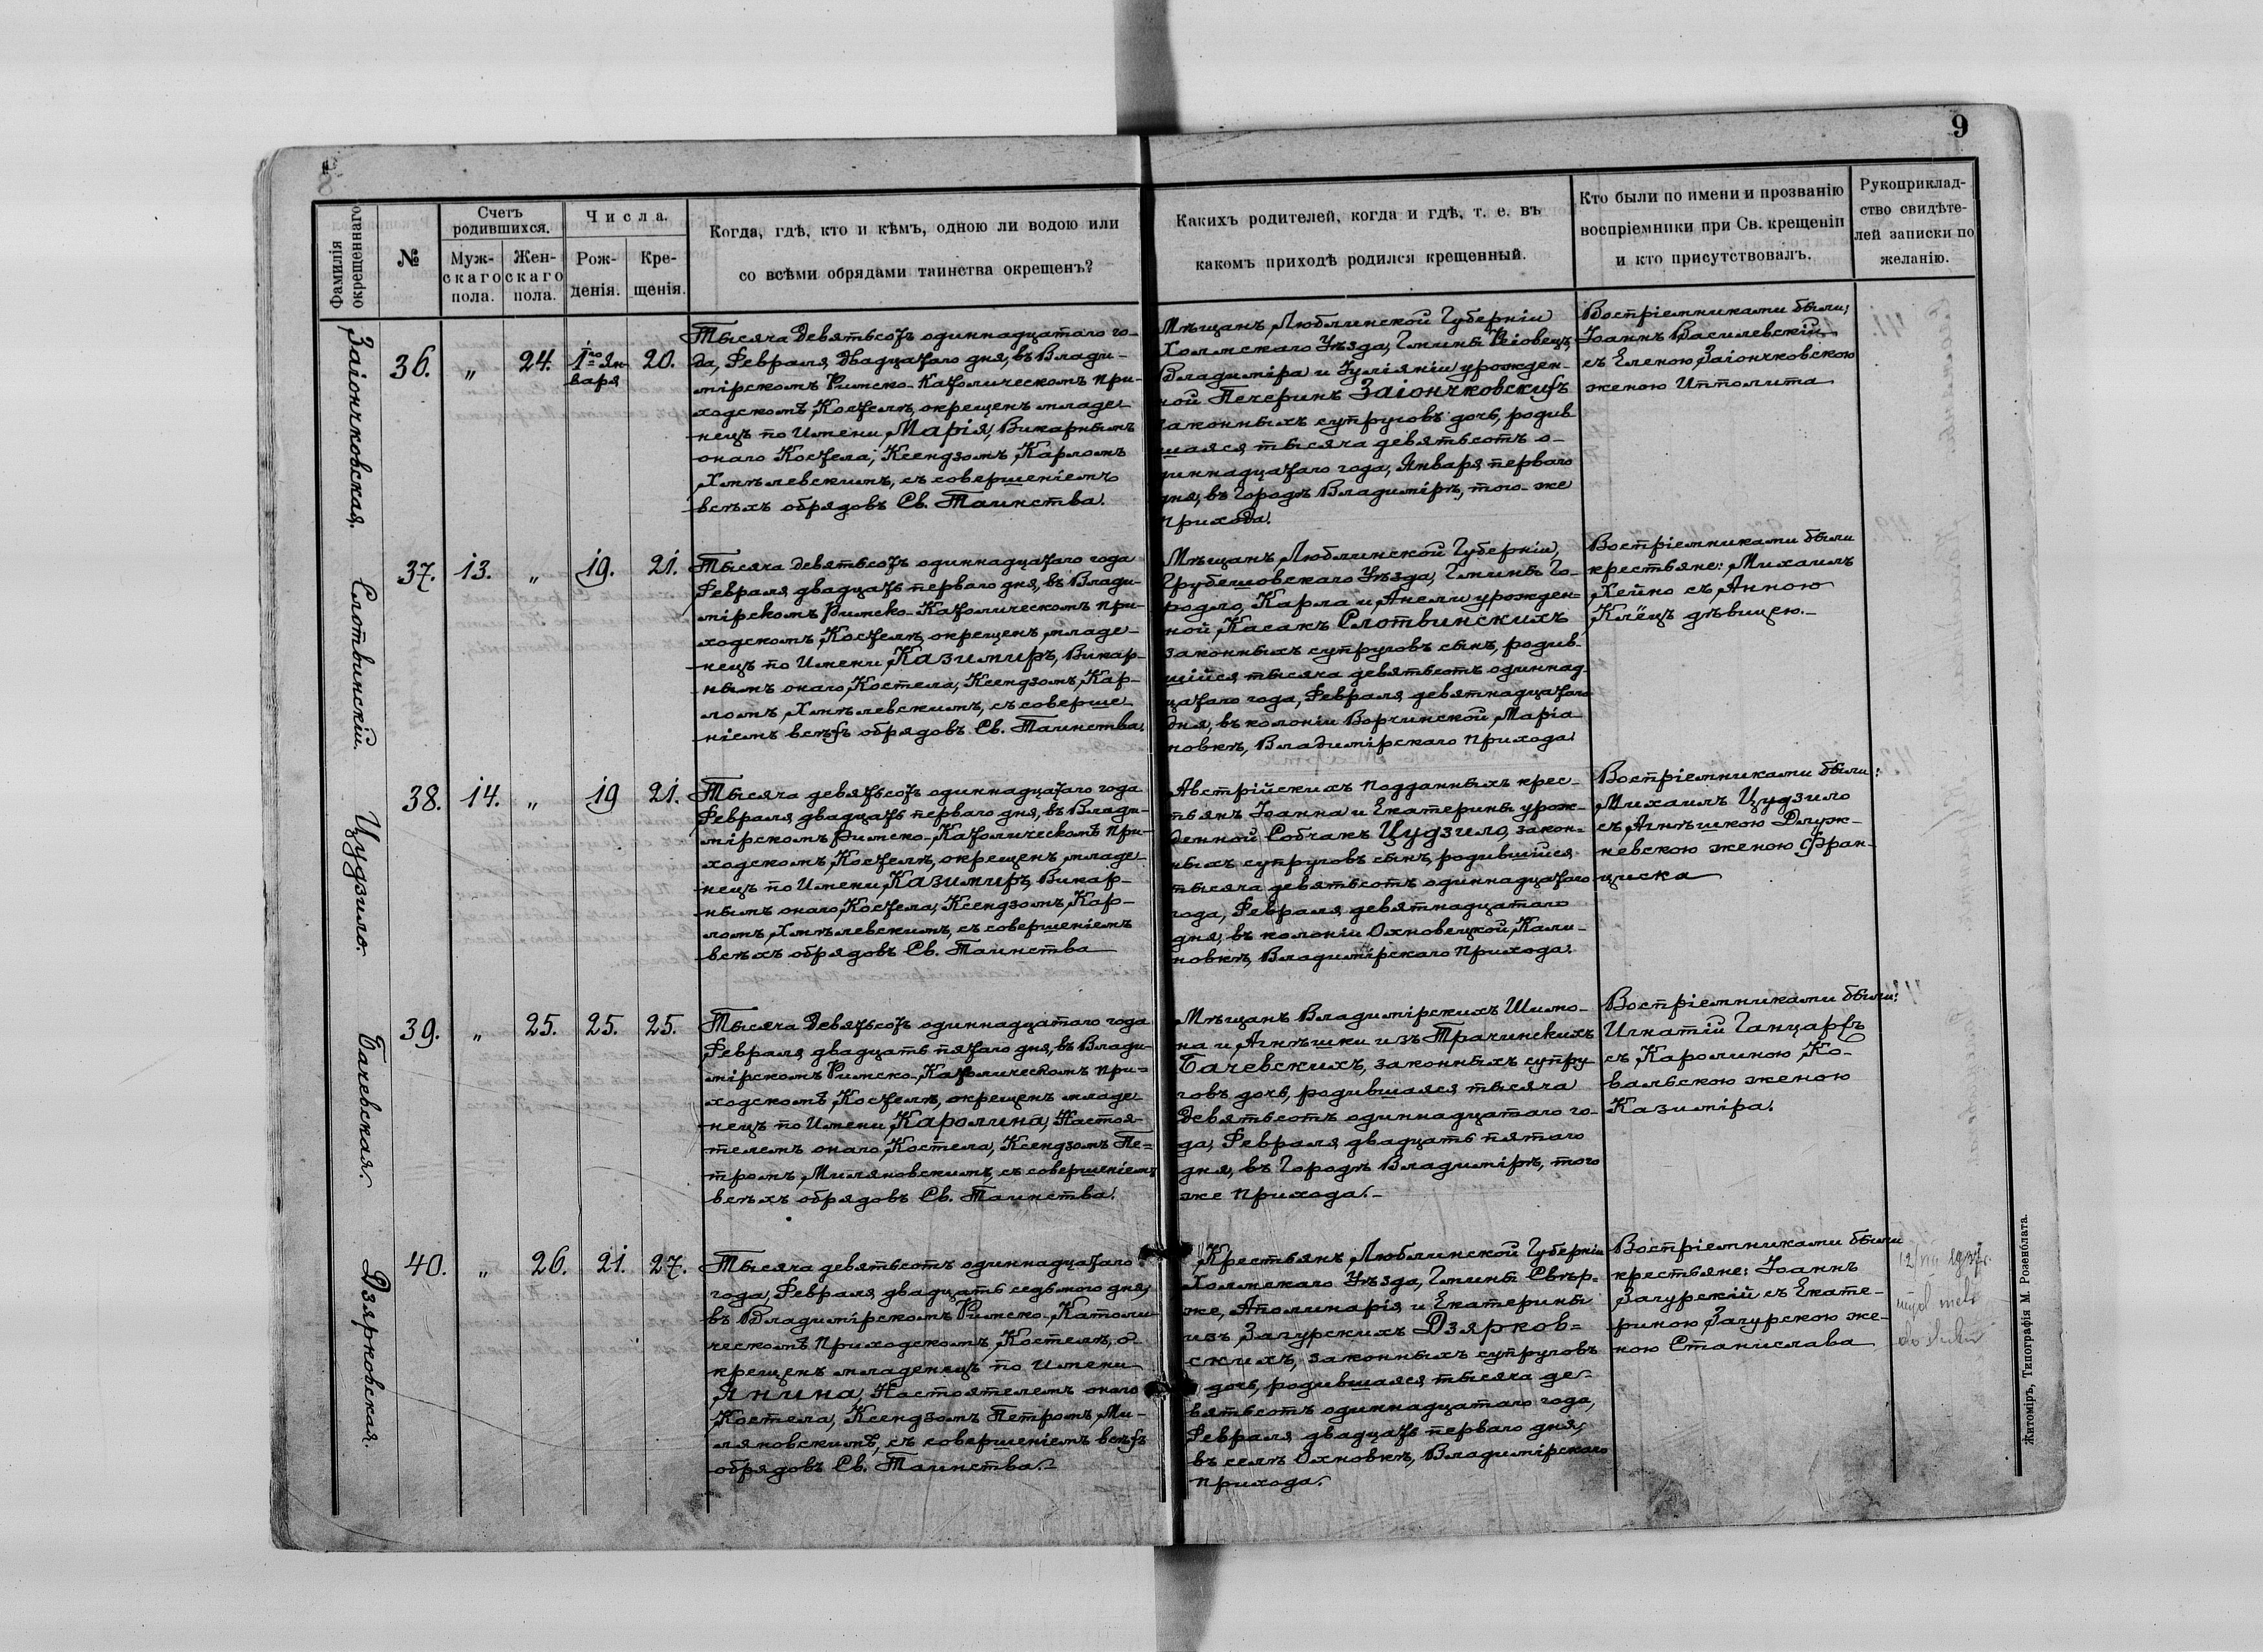 9
Фамилія окрещеннаго
№
Счетъ родившихся.
Муж-
скаго
пола.
Жен-
скаго
пола.
Числа.
Рож-
денія.
Кре-
щенія.
Когда, гдѣ, кто и кѣмъ, одною ли водою или
со всѣми обрядами таинства окрещенъ?
Какихъ родителей, когда и гдѣ, т. е. въ
какомъ приходѣ родился крещенный.
Кто были по имени и прозванію
воспріемники при Св. крещеніи
и кто присутствовалъ.
Рукоприклад-
ство свидѣте-
лей записки по
желанію.
Заіончковская.
36.
"
24.
1го Ян-
варя
20.
Тысяча девятьсотъ одиннадцатаго го-
да, Февраля двадцатаго дня, въ Влади-
мірскомъ Римско-Католическомъ При-
ходскомъ Костелѣ, окрещенъ младе-
нецъ по Имени Марія, Викарнымъ
онаго Костела, Ксендзомъ Карломъ
Хмѣлевскимъ, съ совершеніемъ
всѣхъ обрядовъ Св. Таинства.
Мѣщанъ Люблинской Губерніи
Холмскаго Уѣзда, Гмины Раіовецъ
Владиміра и Іуліяніи урожден-
ной Печеринъ Заіончковскихъ
законныхъ супруговъ дочь, родив
шаяся тысяча девятьсотъ о-
диннадцатаго года, Января перваго
дня, въ Городѣ Владимірѣ, того-же
прихода.
Востріемниками были:
Іоаннъ Василевскій
съ Еленою Заіончковскою
женою Ипполита
Слотвинскій.
37.
13.
"
19.
21.
Тысяча девятьсотъ одиннадцатаго года
Февраля двадцать перваго дня, въ Влади-
мірскомъ Римско-Католическомъ При-
ходскомъ Костелѣ, окрещенъ младе-
нецъ по Имени Казимиръ, Викар-
нымъ онаго Костела, Ксендзомъ Кар-
ломъ Хмѣлевскимъ, съ соверше-
ніемъ всѣхъ обрядовъ Св. Таинства.
Мѣщанъ Люблинской Губерніи,
Грубешовскаго Уѣзда, Гмины Го-
родло, Карла и Анели урожден-
ной Касакъ Слотвинскихъ
законныхъ супруговъ сынъ, родив-
шійся тысяча девятьсотъ одиннад-
цатаго года, Февраля девятнадцатаго
дня, въ колоніи Ворчинской Маріа-
новкѣ, Владимірскаго прихода.
Востріемниками были
крестьяне: Михаилъ
Хейно съ Анною
Клёцъ дѣвицею.
Цудзило.
38.
14.
"
19
21.
Тысяча девятьсотъ одиннадцатаго года
Февраля двадцать перваго дня, въ Влади-
мірскомъ Римско-Католическомъ При-
ходскомъ Костелѣ, окрещенъ младе-
нецъ по Имени Казимиръ, Викар-
нымъ онаго Костела, Ксендзомъ Кар-
ломъ Хмѣлевскимъ, съ совершеніемъ
всѣхъ обрядовъ Св. Таинства
Австрійскихъ подданныхъ крес-
тьянъ Іоанна и Екатерины урож-
денной Собчакъ Цудзило, закон-
ныхъ супруговъ сынъ, родившійся
тысяча девятьсотъ одиннадцатаго
года, Февраля девятнадцатаго
дня, въ колоніи Охновецкой Кали-
новкѣ, Владимірскаго прихода.
Востріемниками были:
Михаилъ Цудзило
съ Агнѣшкою Длуж-
невскою женою Фран-
циска
Бачевская.
39.
"
25.
25.
25.
Тысяча девятьсотъ одиннадцатаго года
Февраля двадцать пятаго дня, въ Влади-
мірскомъ Римско-Католическомъ При-
ходскомъ Костелѣ, окрещенъ младе
нецъ по Имени Каролина, Настоя-
телемъ онаго Костела, Ксендзомъ Пе-
тромъ Миляновскимъ, съ совершеніемъ
всѣхъ обрядовъ Св. Таинства.
Мѣщанъ Владимірскихъ Шимо-
на и Агнѣшки изъ Трачинскихъ
Бачевскихъ, законныхъ супру-
говъ дочь, родившаяся тысяча
девятьсотъ одиннадцатаго го-
да, Февраля двадцать пятаго
дня, въ Городѣ Владимірѣ, того
же прихода.
Востріемниками были:
Игнатій Ганцаръ
съ Каролиною Ко-
вальскою женою
Казиміра.
Дзярковская.
40.
"
26.
21.
27.
Тысяча девятьсотъ одиннадцатаго
года, Февраля двадцать седьмого дня,
въ Владимірскомъ Римско-Католи-
ческомъ Приходскомъ Костелѣ, о-
крещенъ младенецъ по Имени
Янина, Настоятелемъ онаго
Костела, Ксендзомъ Петромъ Ми-
ляновскимъ, съ совершеніемъ всѣхъ
обрядовъ Св. Таинства.
Крестьянъ Люблинской Губерніи
Холмскаго Уѣзда, Гмины Свѣр-
же, Аполинарія и Екатерины
изъ Загурскихъ Дзярков-
скихъ, законныхъ супруговъ
дочь, родившаяся тысяча де-
вятьсотъ одиннадцатаго года,
Февраля двадцать перваго дня,
въ селѣ Охновкѣ, Владимірскаго
прихода.
Востріемниками были
крестьяне: Іоаннъ
Загурскій съ Екате-
риною Загурскою же-
ною Станислава
12/VIII 1937.
Житоміръ, Типографія М. Розенблата.